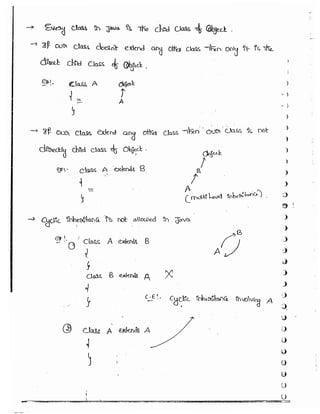 → Every class in Java is the child class of Object.
→ If our class doesn't extend any other class then only it is the
direct child class of Object.
Ex:- class A Object
{ ↑
≡ A
}
→ If our class extend any other class then our class is not
directly child class of Object.
Object
Ex:- class A extends B B
{
≡ A
} (multi level inheritance)
→ Cyclic inheritance is not allowed in Java
Ex:- ① class A extends B B
{ A
}
class B extends A X
{
} C.E:- Cyclic inheritance involving A
② class A extends A
{
}